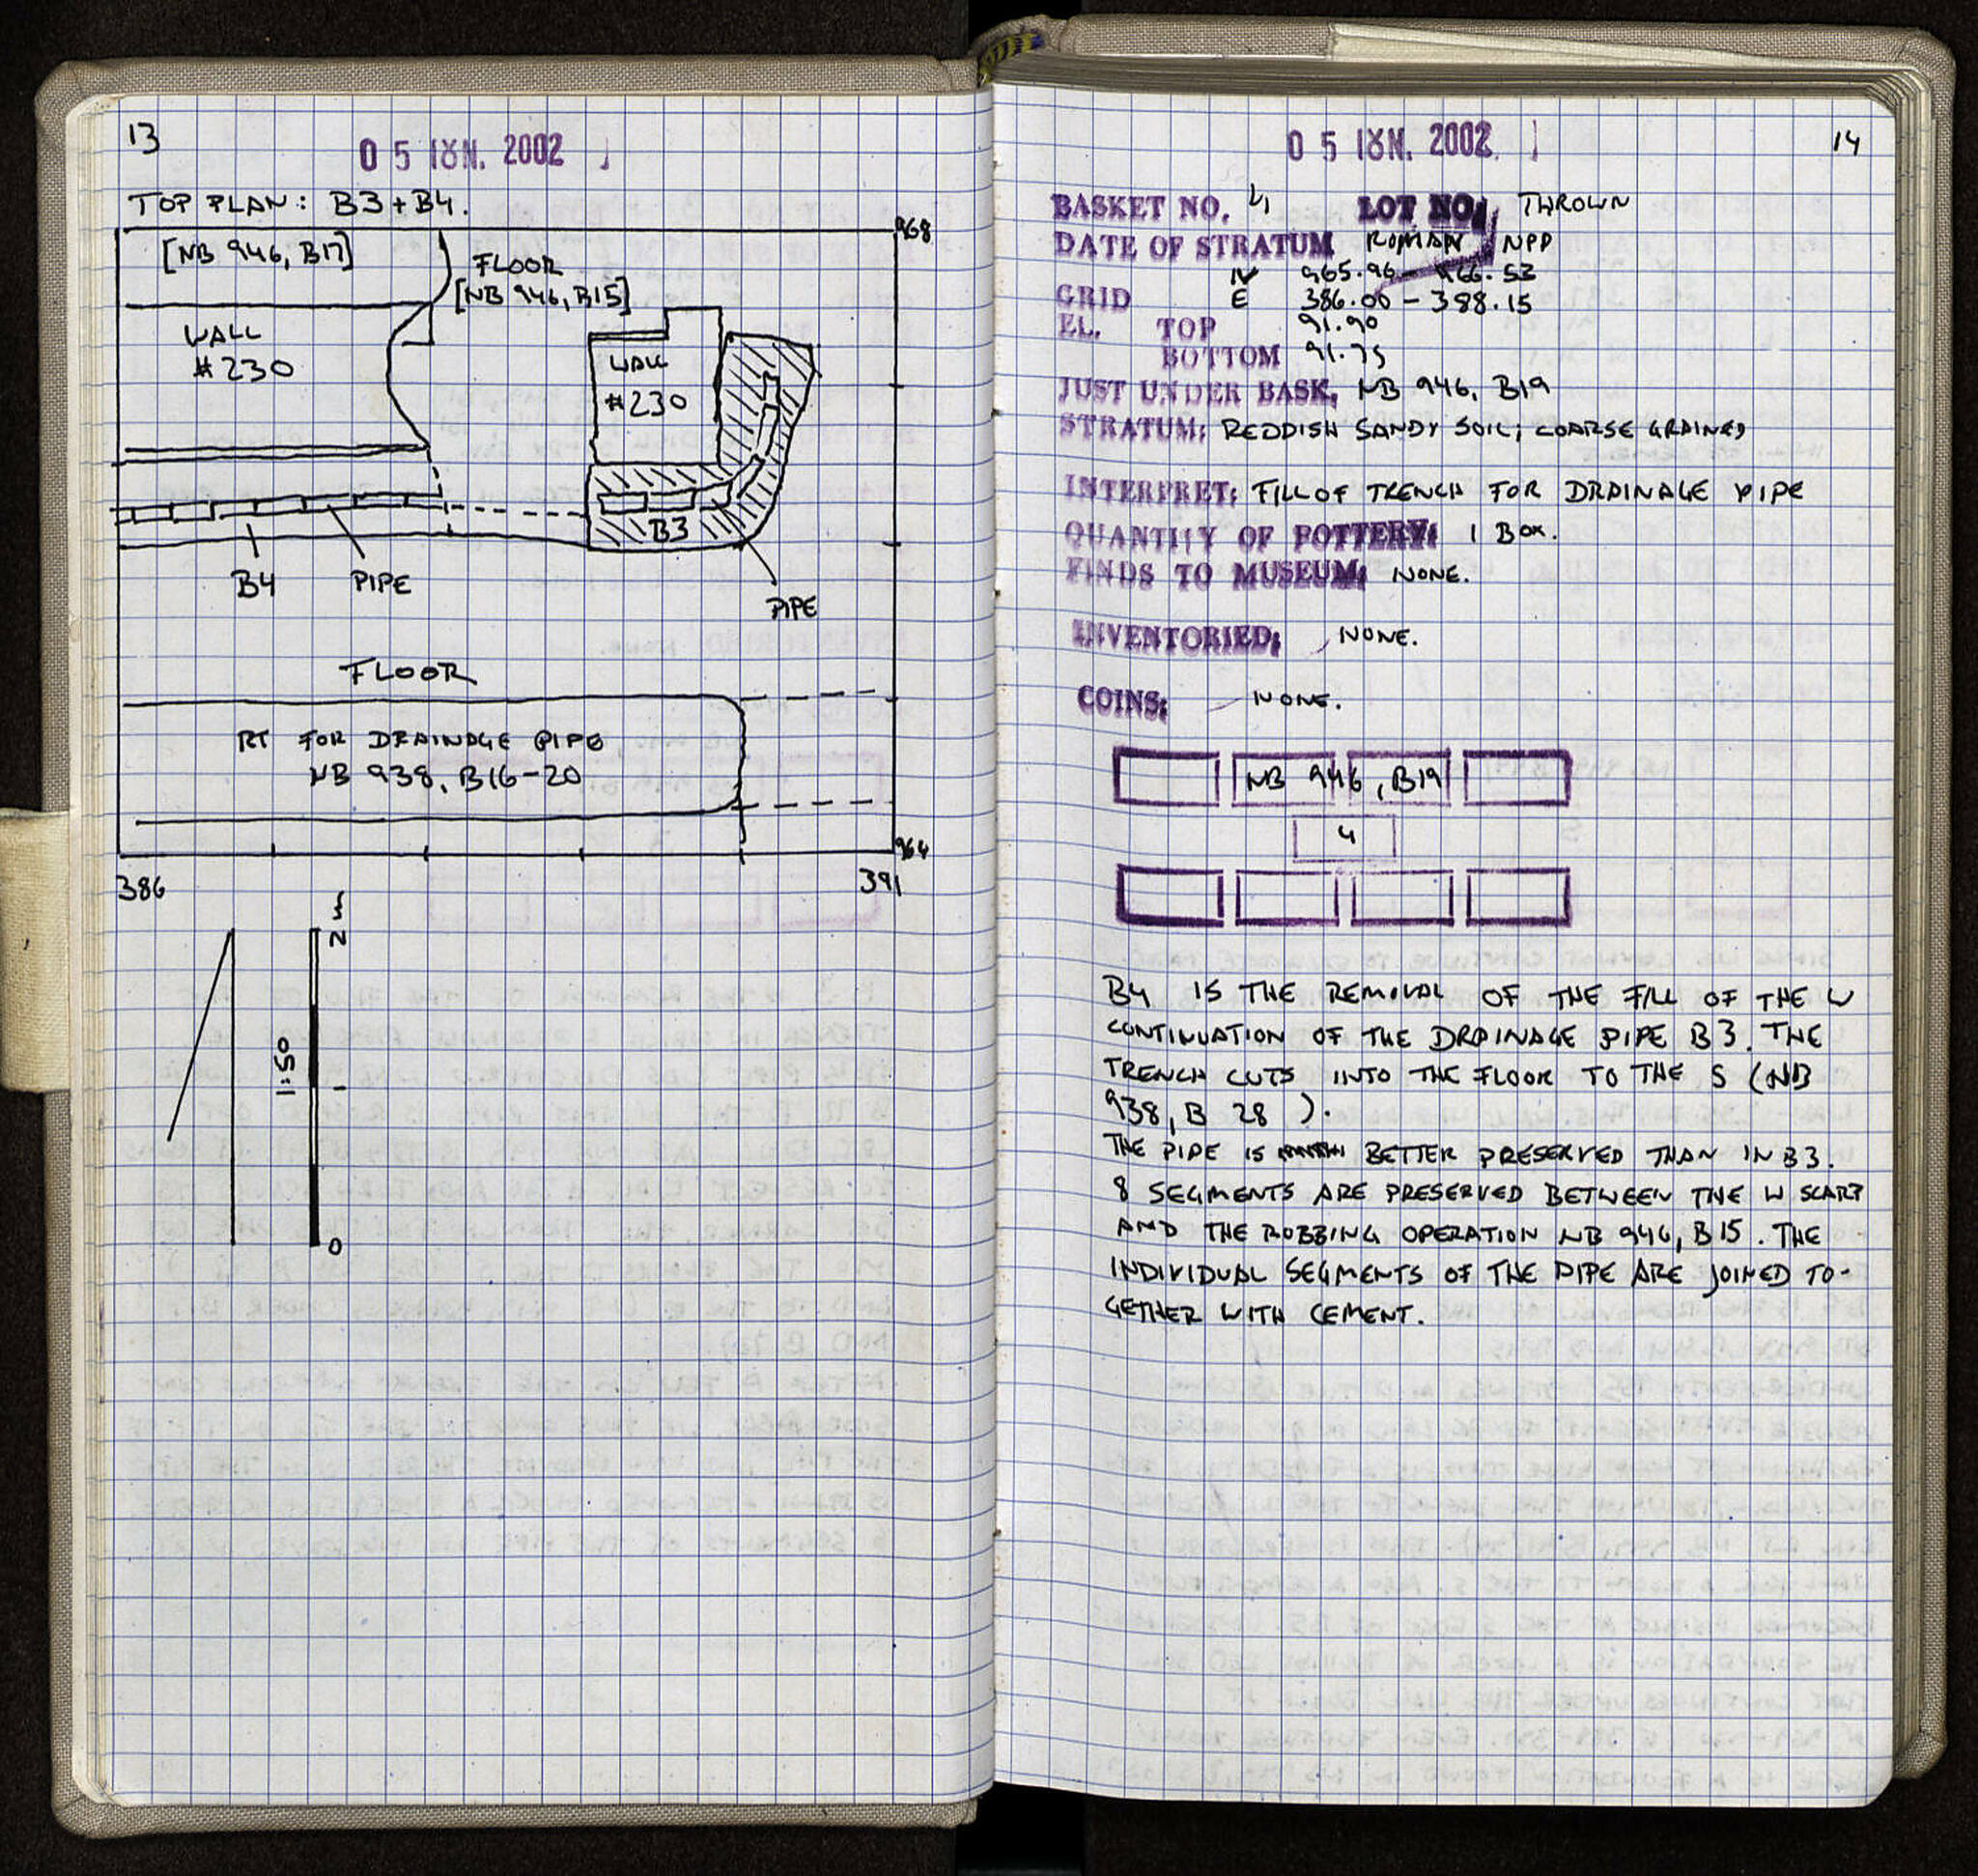 13
05 IȢN. 2002
TOP PLAN: B3+B4.
968
[NB 946, B17]
FLOOR
[NB 946, B15]
WALL
#230
WALL
#230
B3
B4
PIPE
PIPE
FLOOR
RT FOR DRAINAGE PIPE
NB 938, B16-20
964
386
391
2m
1:50
0
05 IȢN. 2002
14
BASKET NO. 4 LOT NO. THROWN
DATE OF STRATUM ROMAN NPD
N 965.96 - 966.53
GRID E 386.00 - 388.15
EL. TOP 91.90
BOTTOM 91.75
JUST UNDER BASK. NB 946, B19
STRATUM: REDDISH SANDY SOIL; COARSE GRAINED
INTERPRET: FILL OF TRENCH FOR DRAINAGE PIPE
QUANTITY OF POTTERY: 1 BOX.
FINDS TO MUSEUM: NONE.
INVENTORIED: NONE.
COINS: NONE.
NB 946, B19
4
B4 IS THE REMOVAL OF THE FILL OF THE W
CONTINUATION OF THE DRAINAGE PIPE B3. THE
TRENCH CUTS INTO THE FLOOR TO THE S (NB
938, B 28 ).
THE PIPE IS BETTER PRESERVED THAN IN B3.
8 SEGMENTS ARE PRESERVED BETWEEN THE W SCARP
AND THE ROBBING OPERATION NB 946, B15. THE
INDIVIDUAL SEGMENTS OF THE PIPE ARE JOINED TO-
GETHER WITH CEMENT.